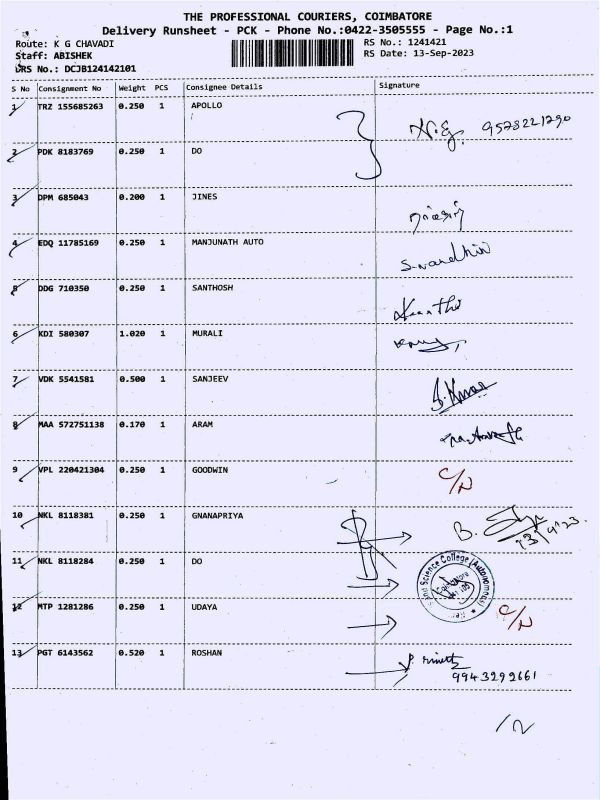 THE PROFESSIONAL COURIERS, COIMBATORE
Delivery Runsheet - PCK - Phone No.:0422-3505555 - Page No.:1
Route: K G CHAVADI
RS No.: 1241421
Staff: ABISHEK
RS Date: 13-Sep-2023
DRS No.: DCJB124142101
S No Consignment No Weight PCS Consignee Details Signature
1 TRZ 155685263 0.250 1 APOLLO
N.G. 9573221790
2 PDK 8183769 0.250 1 DO
3 DPM 685043 0.200 1 JINES
4 EDQ 11785169 0.250 1 MANJUNATH AUTO
5 DDG 710350 0.250 1 SANTHOSH
6 KDI 580307 1.020 1 MURALI
7 VDK 5541581 0.500 1 SANJEEV
8 MAA 572751138 0.170 1 ARAM
9 VPL 220421304 0.250 1 GOODWIN C/N
10 NKL 8118381 0.250 1 GNANAPRIYA
B. 13/9/23
11 NKL 8118284 0.250 1 DO
Science College (Autonomous)
Coimbatore
12 MTP 1281286 0.250 1 UDAYA C/N
13 PGT 6143562 0.520 1 ROSHAN
9943292661